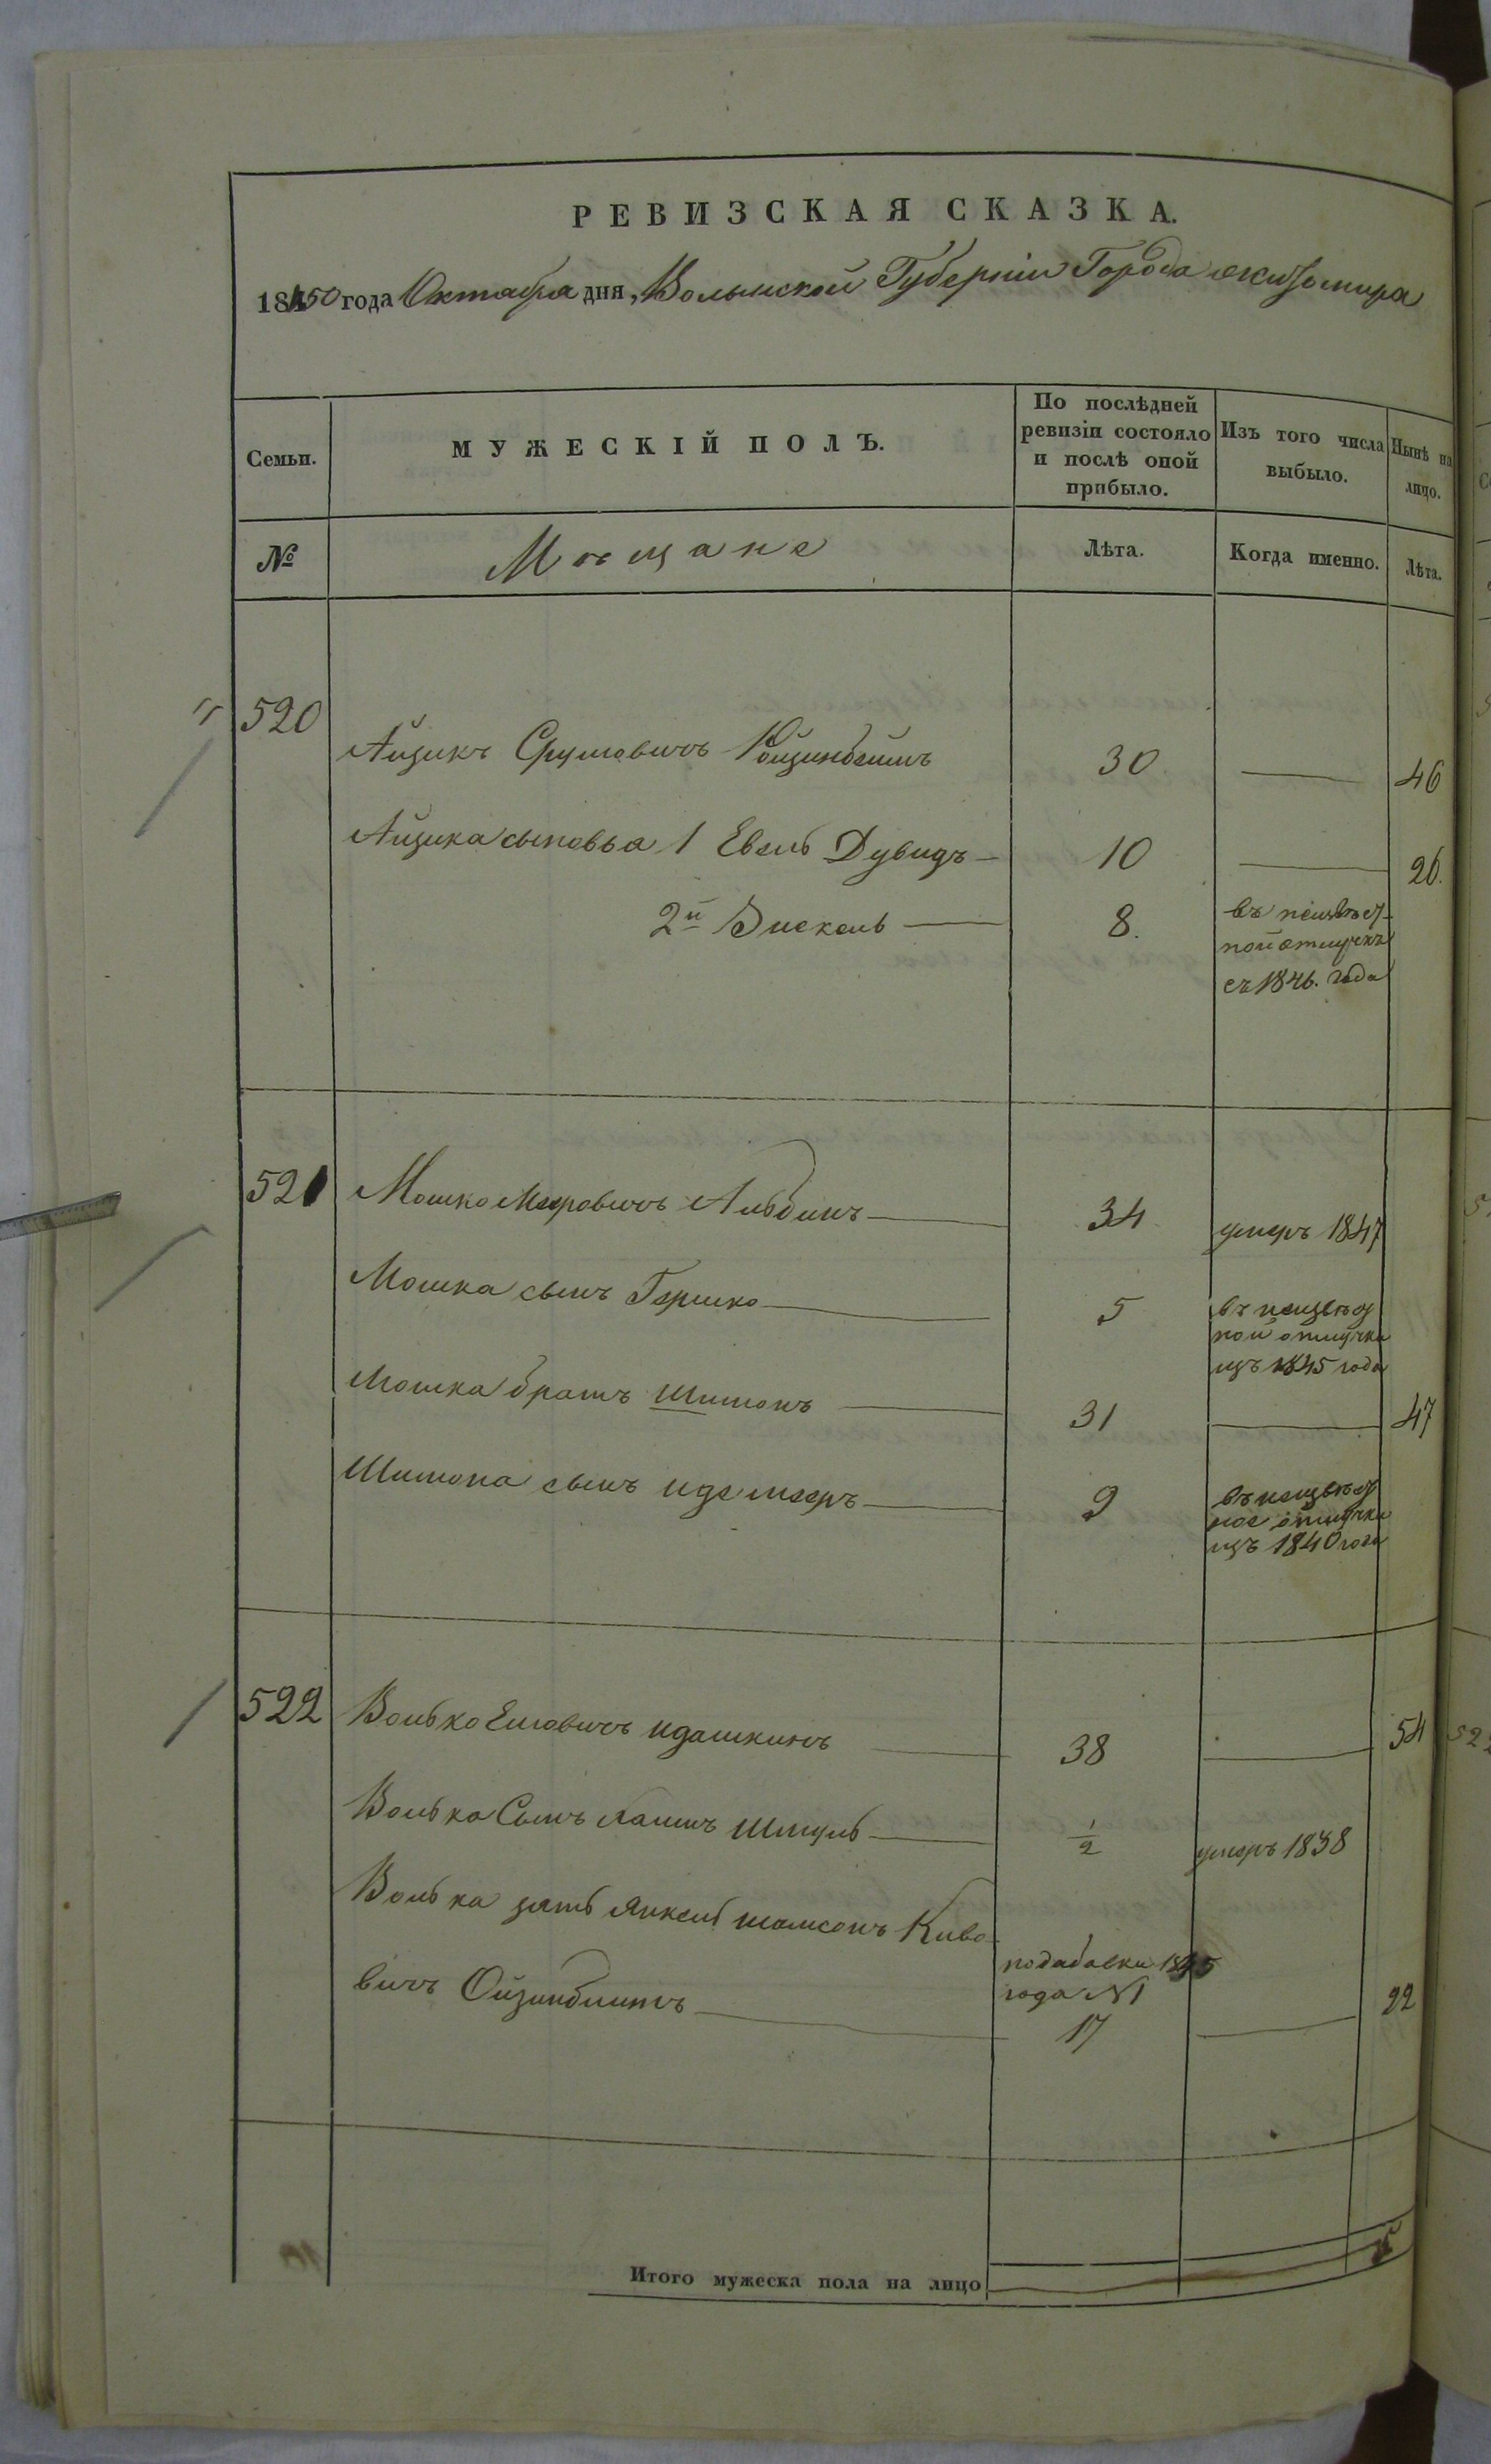 РЕВИЗСКАЯ СКАЗКА.
1850 года Октября дня, Волынской Губерніи Города Житомира
Семьи.
МУЖЕСКІЙ ПОЛЪ.
По послѣдней ревизіи состояло и послѣ оной прибыло.
Изъ того числа выбыло.
Нынѣ на лицо.
№
Мѣщане
Лѣта.
Когда именно.
Лѣта.
520
Айзикъ Сруловичъ 30 46
Айзика сыновья 1 Евель Дувидъ 10 26.
2й 8. въ неизвѣст-
ной отлучкѣ
съ 1846. года
521 Мошко Меровичъ 34 умеръ 1847
Мошка сынъ Гершко 5 въ неизвѣст
ной отлучки
изъ 1845 года
Мошка братъ Шимонъ 31 47
Шимона сынъ Иде Мееръ 9 въ неизвѣст
ное отлучки
изъ 1840 года
522 Волько 38 54
Волька Сынъ Шмуль 1/2 умеръ 1838
Волька зять Янкель Шамсонъ Киво-
вичъ
подабавки 1845
года №1
17 22
Итого мужеска пола на лицо